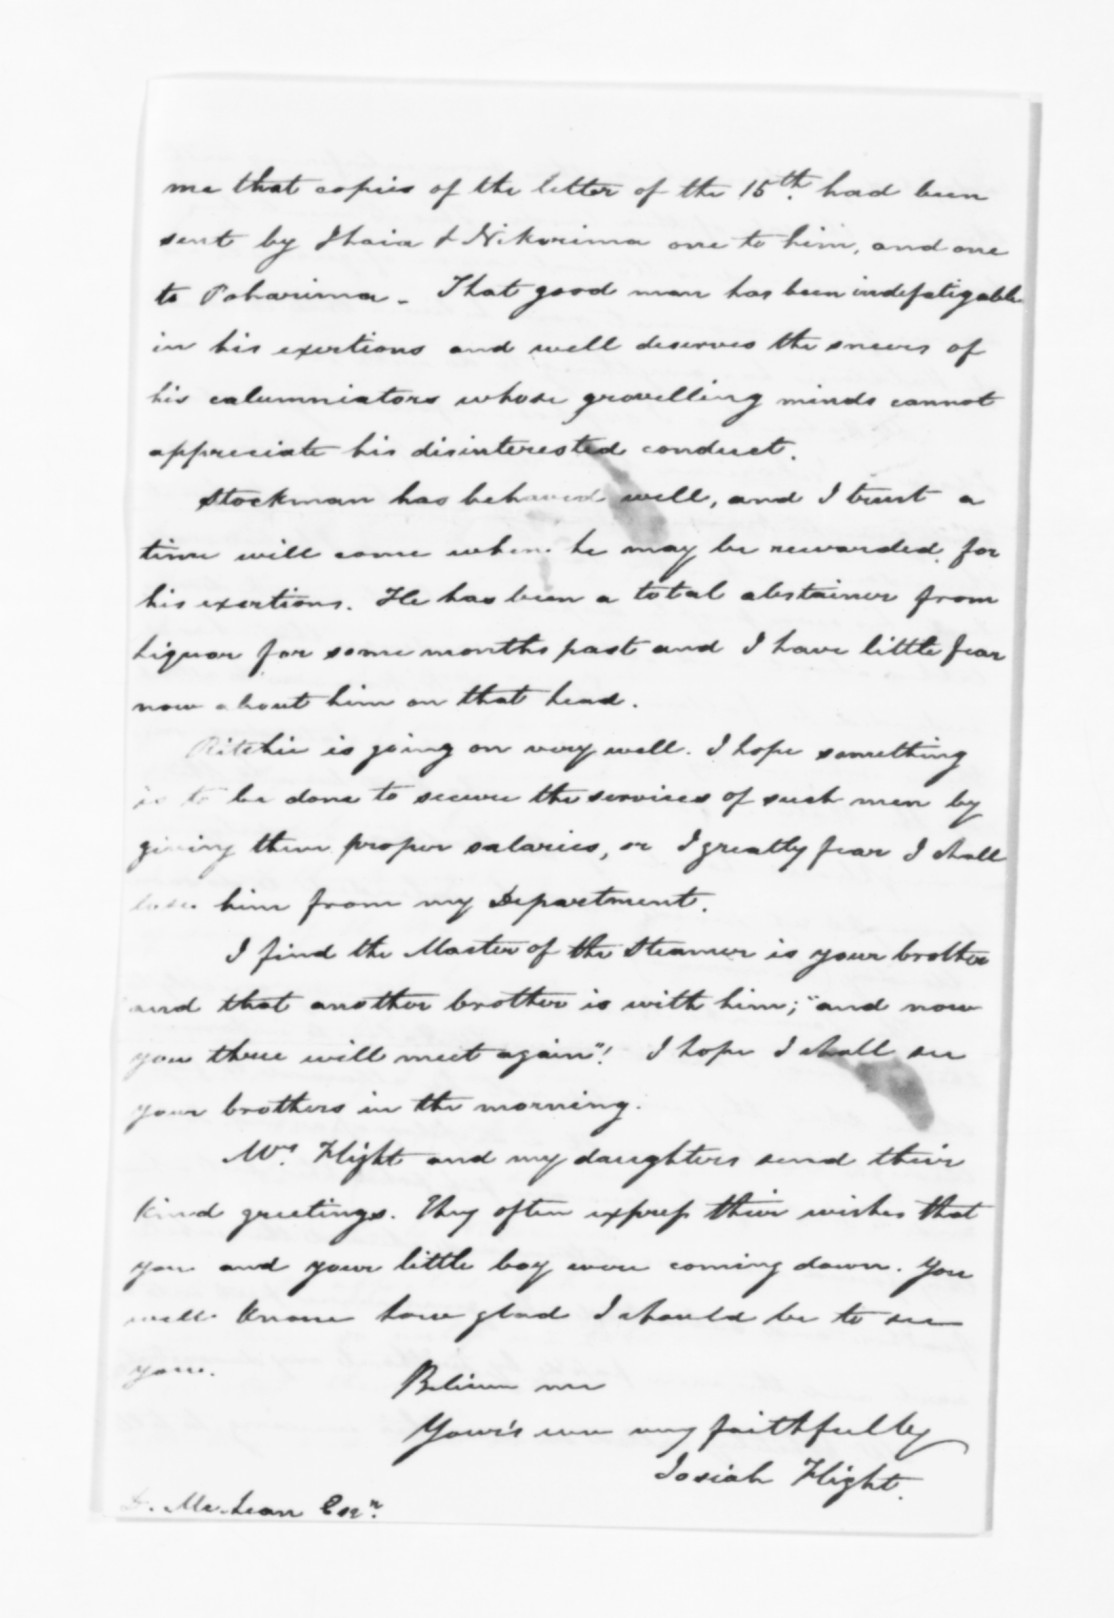 me that copies of the letter of the 15th. had been
sent by Ihaia & Nikorima one to him, and one
to Poharima - That good man has been indefatigable
in his exertions and well deserves the sneers of
his calumniators whose grovelling minds cannot
appreciate his disinterested conduct.
Stockman has behaved well, and I trust a
time will come when he may be rewarded for
his exertions. He has been a total abstainer from
liquor for some months past and I have little fear
now about him on that head.
Ritchie is going on very well. I hope something
is to be done to secure the services of such men by
giving them proper salaries, or I greatly fear I shall
lose him from my Department.
I find the Master of the Steamer is your brother
and that another brother is with him; "and now
you three will meet again"! I hope I shall see
your brothers in the morning.
Mrs. Flight and my daughters send their
kind greetings. They often express their wishes that
you and your little boy were coming down. You
well know how glad I should be to see
you.
Believe me
Your's ever very faithfully
Josiah Flight.
D. McLean Esqr.